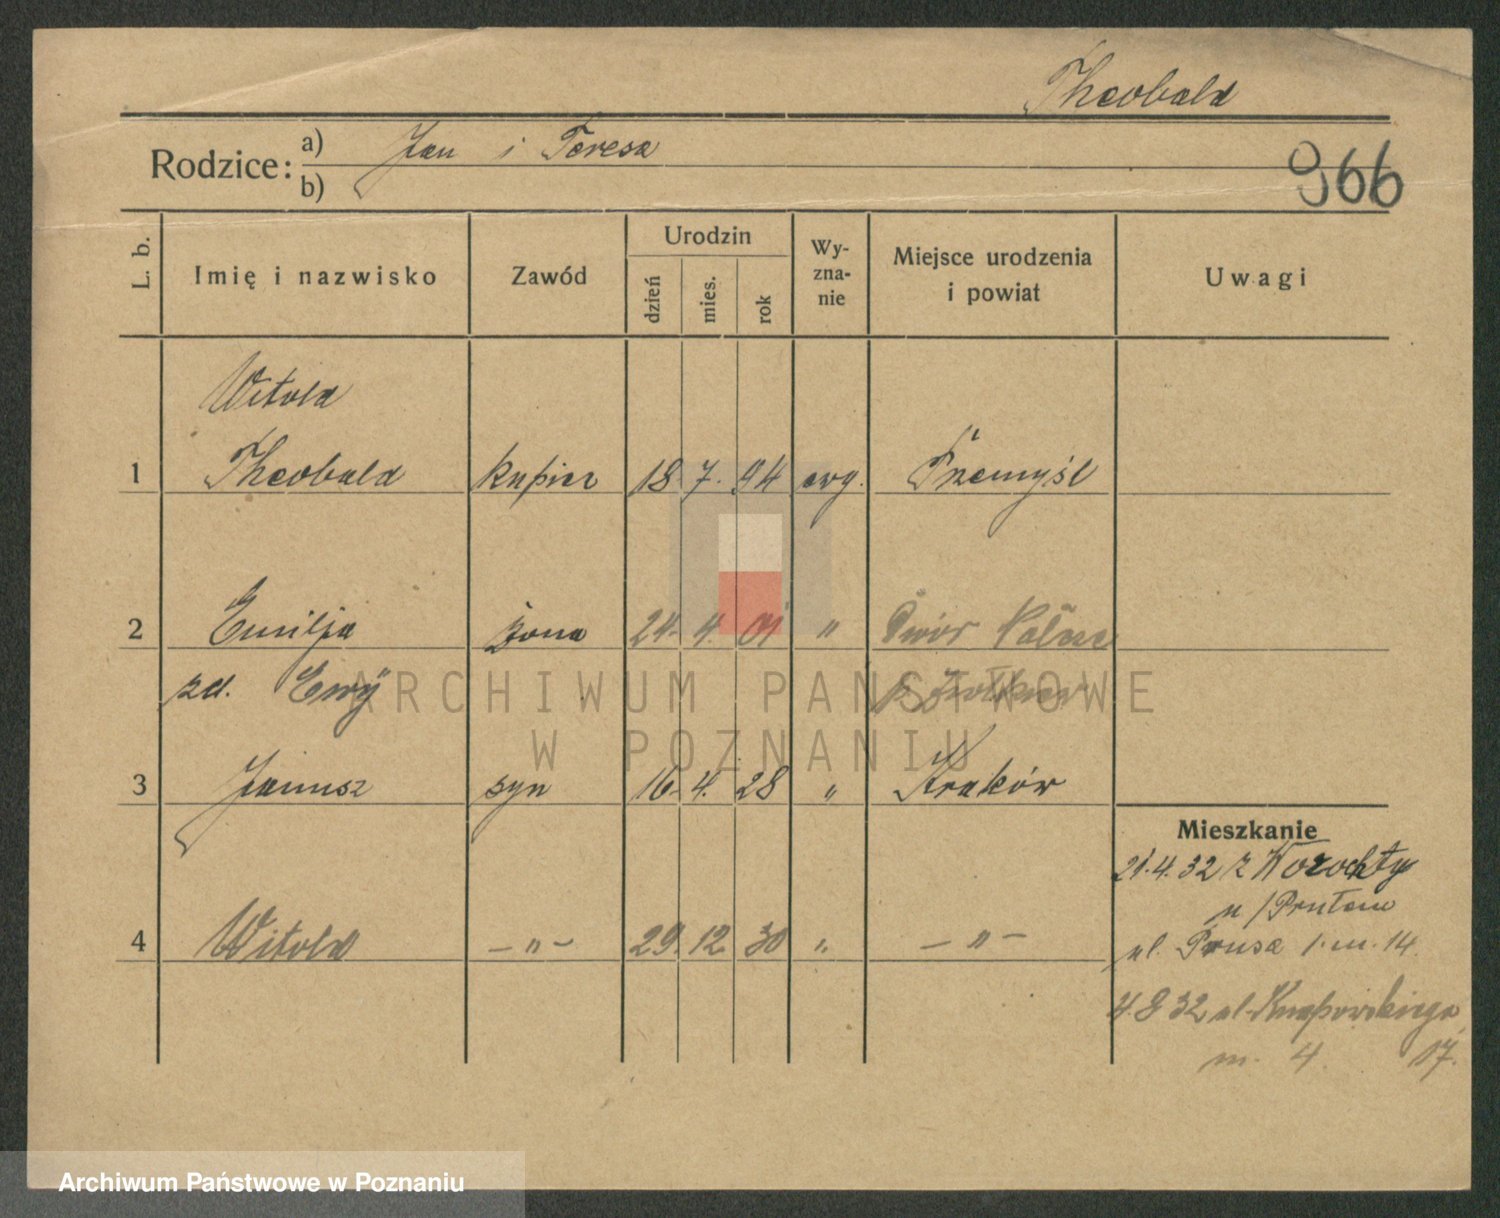 Theobald
Rodzice: a) Jan i Teresa
b)
966
L. b. Imię i nazwisko Zawód Urodzin dzień mies. rok Wy-zna-nie Miejsce urodzenia i powiat Uwagi
Witold
1 Theobald kupiec 18. 7. 94 ewg. Przemyśl
2 Emilja żona 24. 4. 01 " Dwór
zd. Ewy
ARCHIWUM PAŃSTWOWE
W POZNANIU
3 Janusz syn 16. 4. 28 " Kraków
Mieszkanie
21.4.32 z Worochty
n/Prutem
4 Witold – " – 29. 12. 30 " – " –
ul. Prusa 1. m. 14
4.8.32 ul. Knapowskiego
m. 4. 17.
Archiwum Państwowe w Poznaniu